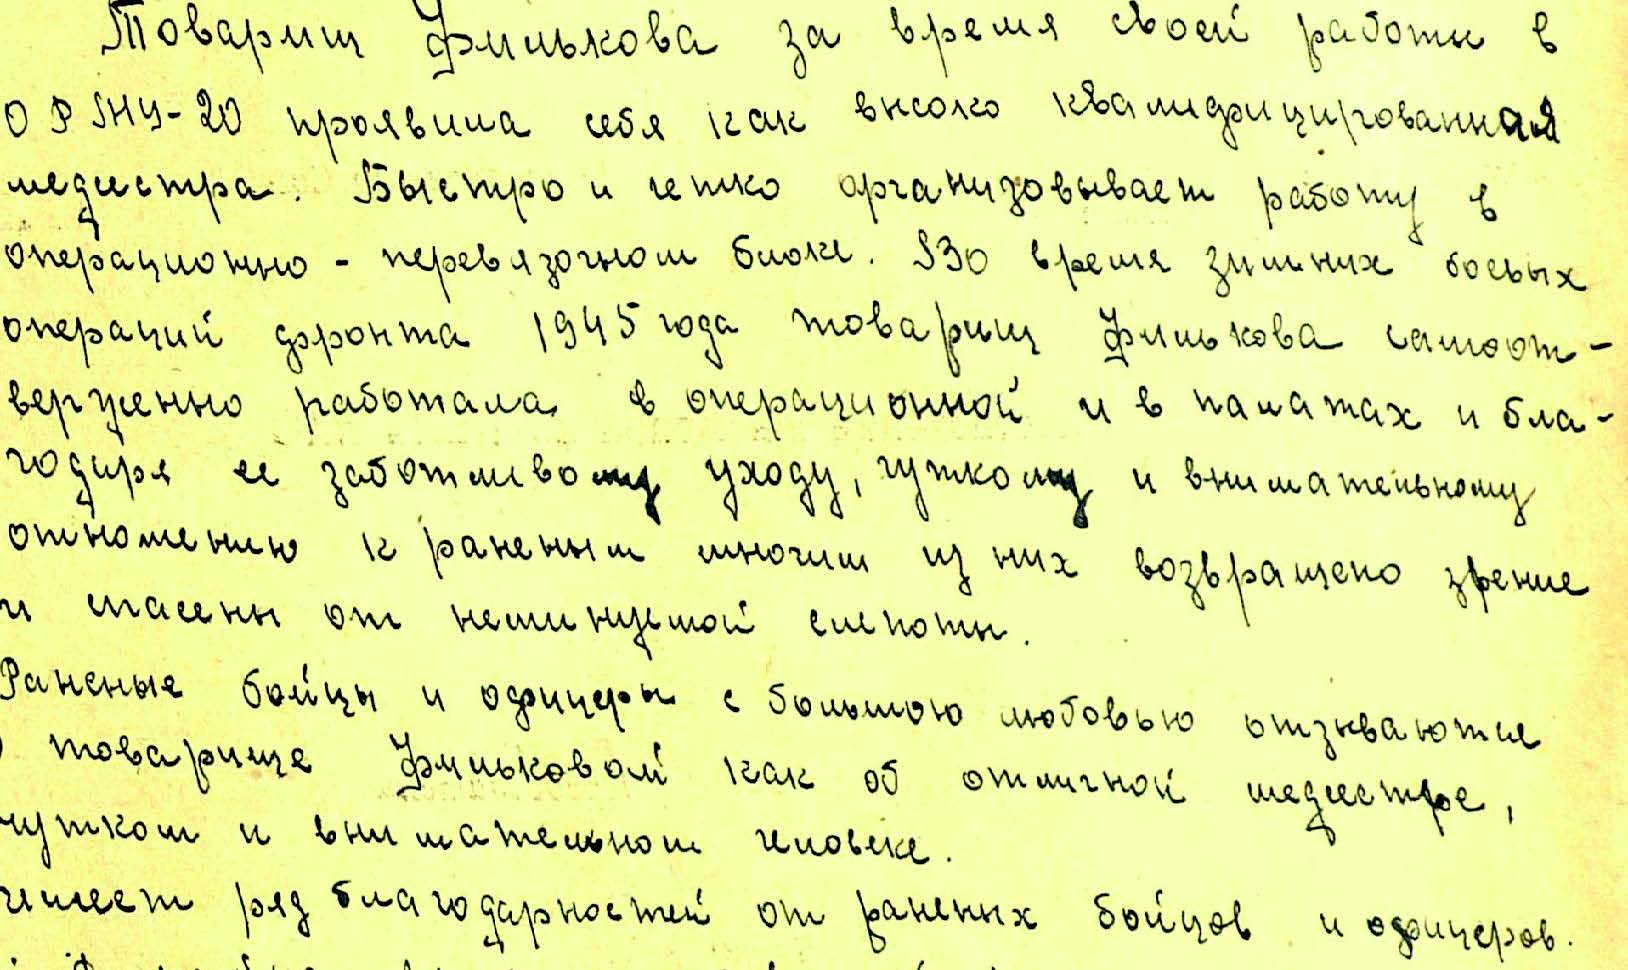 Товарищ Филькова за время своей работы в
ОРМУ-20 проявила себя как высоко квалифицированная
медсестра. Быстро и четко организовывает работу в
операционно - перевязочном блоке. Во время зимних боевых
операций фронта 1945 года товарищ Филькова самоот-
верженно работала в операционной и в палатах и бла-
годаря ее заботливому уходу, чуткому и внимательному
отношению к раненым многим из них возвращено зрение
и спасены от неминуемой слепоты.
Раненые бойцы и офицеры с большою любовью отзываются
о товарище Фильковой как об отличной медсестре,
чутком и внимательном человеке.
Имеет ряд благодарностей от раненых бойцов и офицеров.